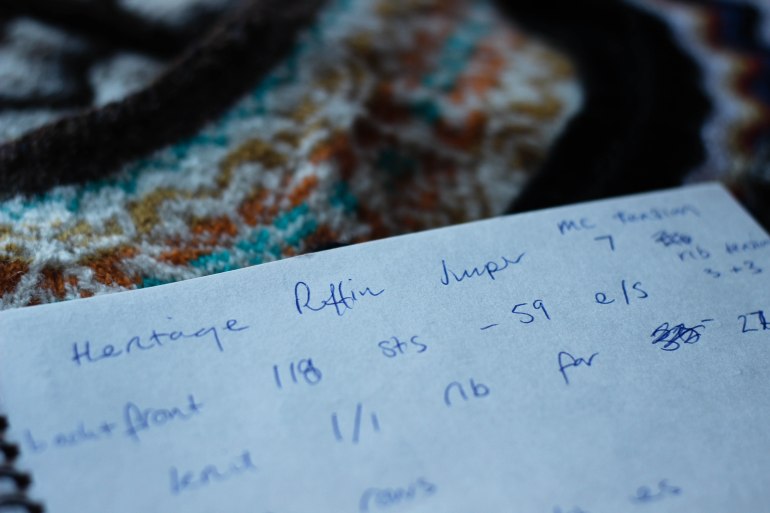 Heritage Puffin Jumper MC tension
7 rib tension
3+3
back+front 118 sts - 59 e/s
knit 1/1 rib for 27
rows es